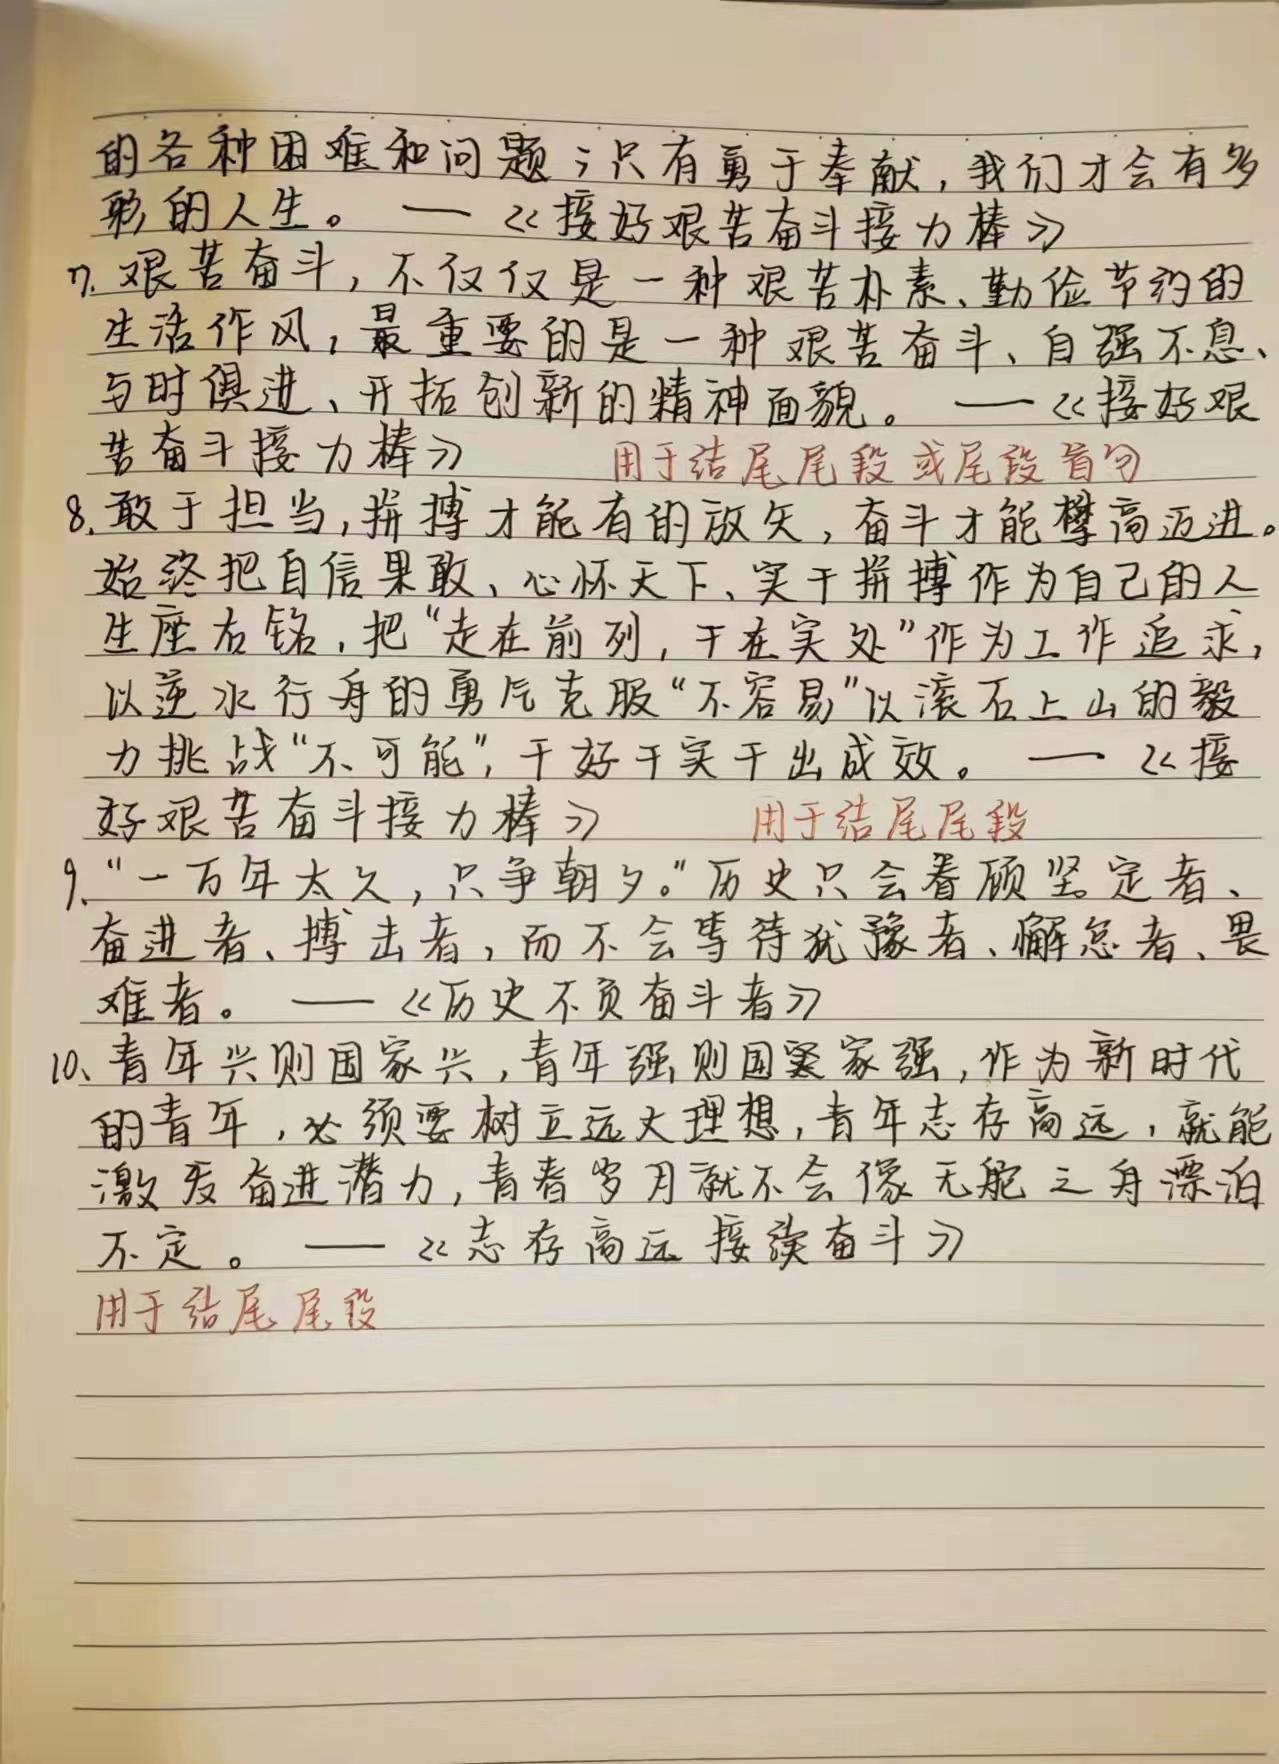 的各种困难和问题；只有勇于奉献，我们才会有多
彩的人生。 —— 《接好艰苦奋斗接力棒》
7. 艰苦奋斗，不仅仅是一种艰苦朴素、勤俭节约的
生活作风，最重要的是一种艰苦奋斗、自强不息、
与时俱进、开拓创新的精神面貌。 —— 《接好艰
苦奋斗接力棒》 用于结尾尾段或尾段首句
8. 敢于担当，拼搏才能有的放矢，奋斗才能攀高迈进。
始终把自信果敢、心怀天下、实干拼搏作为自己的人
生座右铭，把“走在前列，干在实处”作为工作追求，
以逆水行舟的勇气克服“不容易”以滚石上山的毅
力挑战“不可能”，干好干实干出成效。 —— 《接
好艰苦奋斗接力棒》 用于结尾尾段
9、“一万年太久，只争朝夕。”历史只会眷顾坚定者、
奋进者、搏击者，而不会等待犹豫者、懈怠者、畏
难者。 —— 《历史不负奋斗者》
10、青年兴则国家兴，青年强则国家强，作为新时代
的青年，必须要树立远大理想，青年志存高远，就能
激发奋进潜力，青春岁月就不会像无舵之舟漂泊
不定。 —— 《志存高远 接续奋斗》
用于结尾尾段